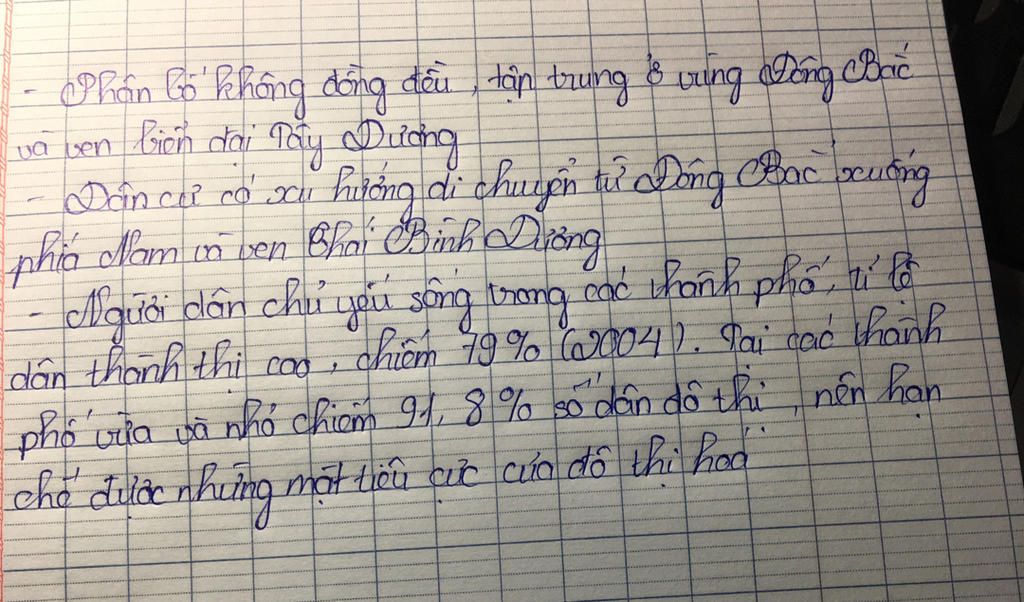 - Phân bố không đồng đều, tập trung ở vùng Đông Bắc
và ven biển đại Tây Dương
- Dân cư có xu hướng di chuyển từ Đông Bắc xuống
phía Nam và ven Thái Bình Dương
- Người dân chủ yếu sống trong các thành phố, tỉ lệ
dân thành thị cao, chiếm 79% (2004). Tại các thành
phố vừa và nhỏ chiếm 91,8% số dân đô thị, nên hạn
chế được những mặt tiêu cực của đô thị hoá